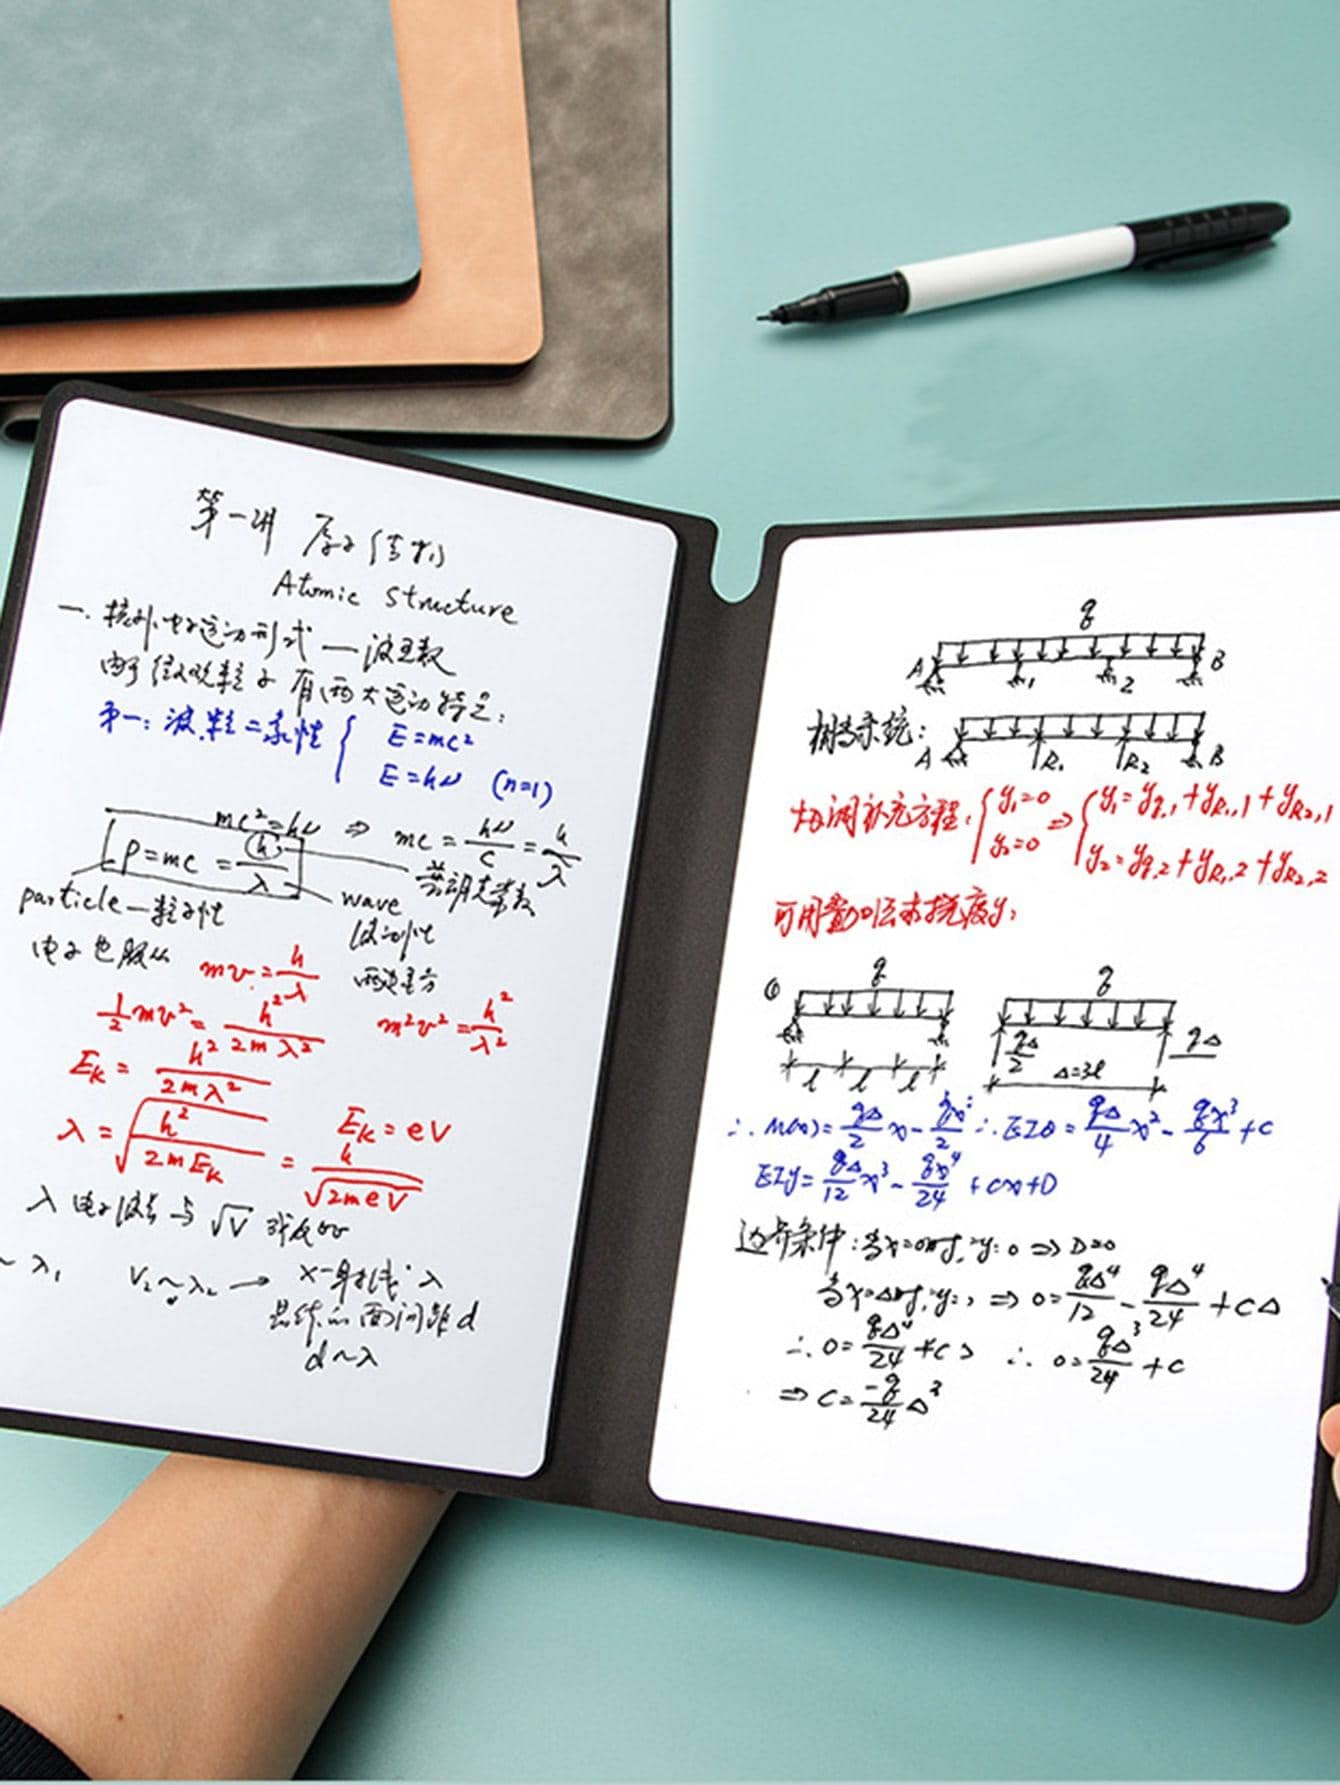 第一讲 原子结构
Atomic Structure
一. 核外电子运动形式 — 波函数
由于微观粒子有两大运动特征:
第一: 波粒二象性 { E=mc²
E=hν (n=1)
mc²=hν ⇒ mc = hν/c = h/λ
P=mc = h/λ
普朗克常数
particle—粒子性
wave
波动性
电子也服从 mv = h/λ
两边平方
½mv² = h²/2mλ²
m²v² = h²/λ²
Ek = h²/2mλ²
λ = √(h²/2mEk) = h/√(2meV)
Ek = eV
λ 电子波长与 √V 成反比
~ λ₁
V₂ ~ λ₂ → X-射线 λ
晶体的面间距 d
d ~ λ
q
A 1 2 B
相当系统:
A R₁ R₂ B
协调补充方程: { y₁=0 y₂=0 ⇒ { y₁ = yq,1 + yR₁,1 + yR₂,1
y₂ = yq,2 + yR₁,2 + yR₂,2
可用叠加法求挠度y:
q
q
l l l
qΔ/2
Δ=3l
qΔ
∴ M(x) = qΔ/2 x - qx²/2 ∴ EIθ = qΔ/4 x² - qx³/6 + C
EIy = qΔ/12 x³ - qx⁴/24 + Cx + D
边界条件: 当x=0时, y=0 ⇒ D=0
当x=Δ时, y=0 ⇒ 0 = qΔ⁴/12 - qΔ⁴/24 + CΔ
∴ 0 = qΔ⁴/24 + CΔ ∴ 0 = qΔ³/24 + C
⇒ C = -q/24 Δ³